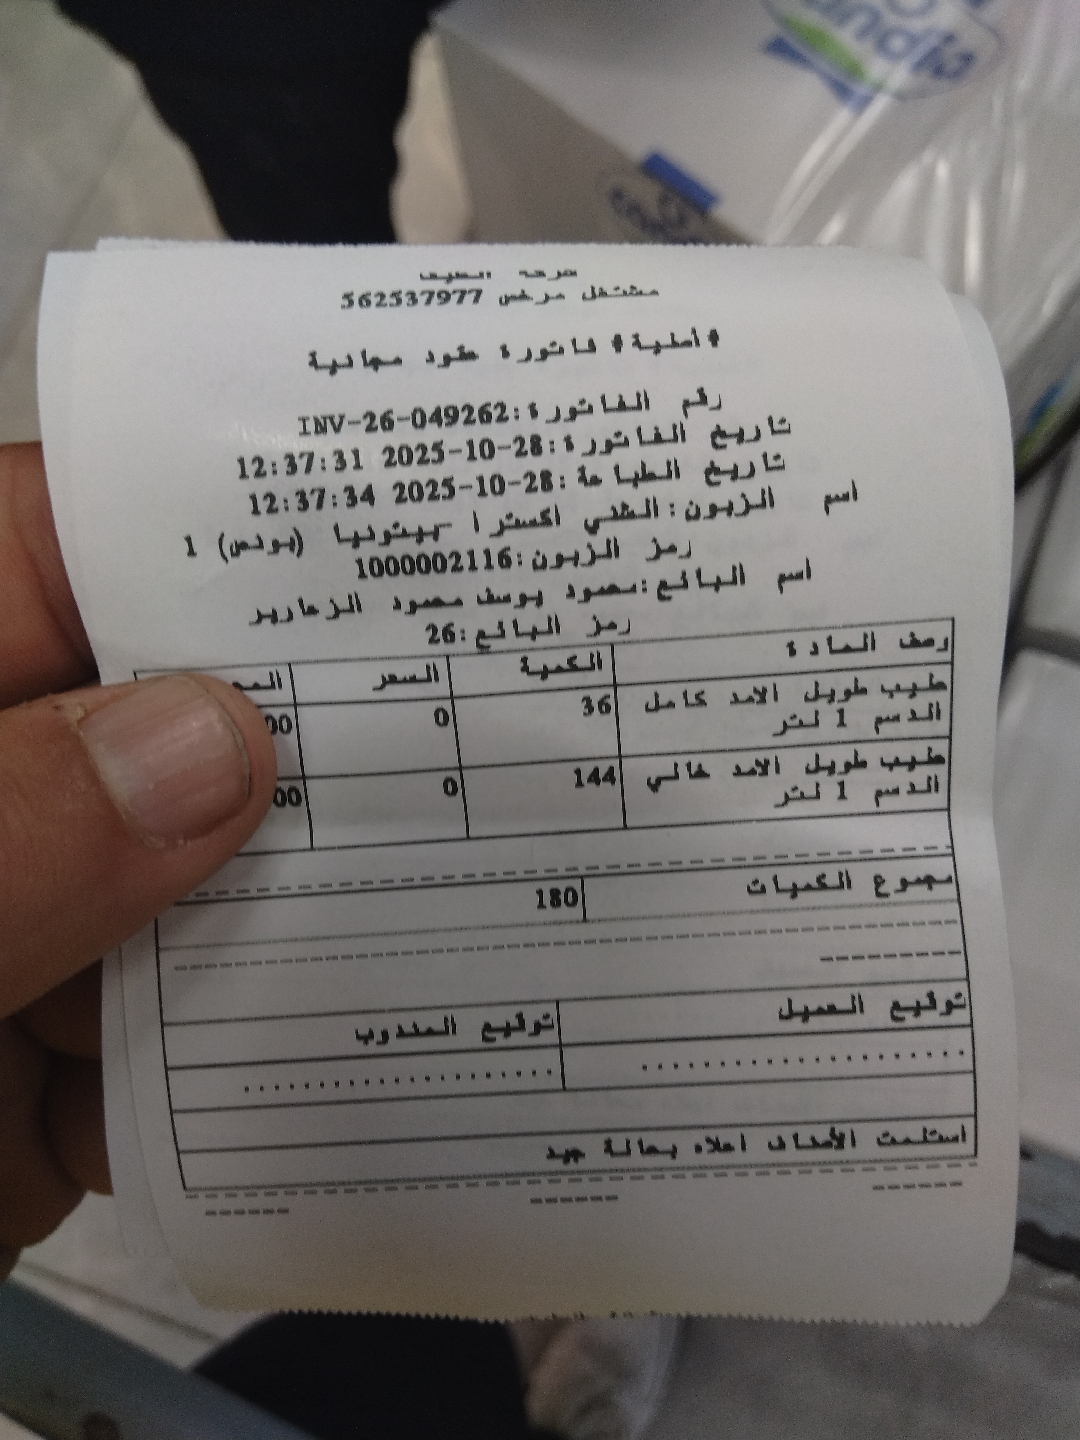 Candia
مشتغل مرخص 562537977
#أصلية# فاتورة عقود مجانية
رقم الفاتورة:INV-26-049262
تاريخ الفاتورة:2025-10-28 12:37:31
تاريخ الطباعة:2025-10-28 12:37:34
اسم الزبون:الشني اكسترا - بيتونيا (بونص) 1
رمز الزبون:1000002116
اسم البائع:محمود يوسف محمود الزعارير
رمز البائع:26
وصف المادة الكمية السعر
حليب طويل الامد كامل الدسم 1 لتر 36 0 00
حليب طويل الامد خالي الدسم 1 لتر 144 0 00
مجموع الكميات 180
توقيع العميل توقيع المندوب
استلمت الأصناف اعلاه بحالة جيد